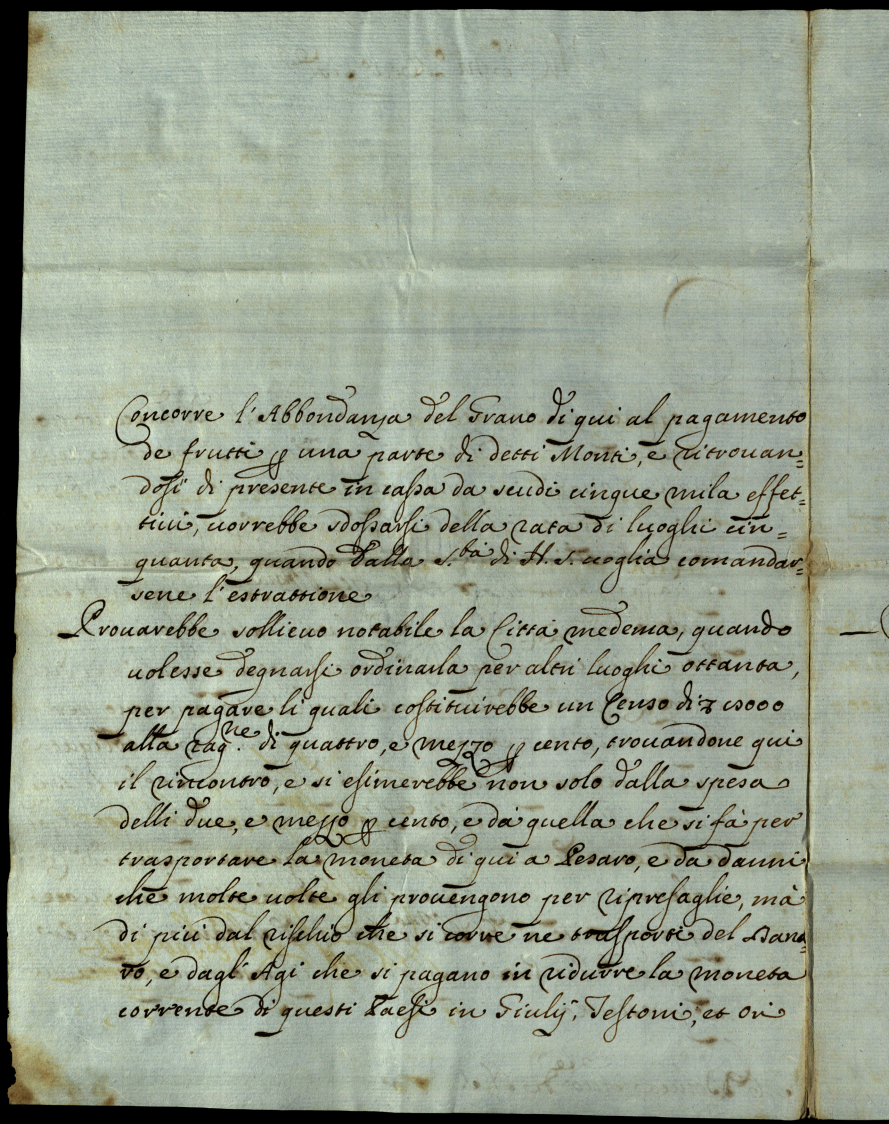 Concorre l'Abbondanza del Grano di qui al pagamento
de frutti ꝑ una parte di detti Monti, e ritrouan=
dosi di presente in cassa da scudi cinque mila effet=
tiui, uorrebbe sdossarsi della rata di luoghi cin=
quanta, quando dalla S.tà di N. S. uoglia comandar=
sene l'estrattione
Prouarebbe sollieuo notabile la Città medema, quando
uolesse degnarsi ordinarla per altri luoghi ottanta,
per pagare li quali costituirebbe un Censo di
alla rag.ne di quattro, e mezzo ꝑ cento, trouandone qui
il rincontro, e si esimerebbe non solo dalla spesa
delli due, e mezzo ꝑ cento, e da quella che si fà per
trasportare la moneta di qui a Pesaro, e da danni
che molte uolte gli prouengono per ripresaglie, mà
di più dal rischio che si corre ne trasporti del Dana=
ro, e dagl'Agi che si pagano in ridurre la moneta
corrente di questi Paesi in Giulij, Testoni, et ori